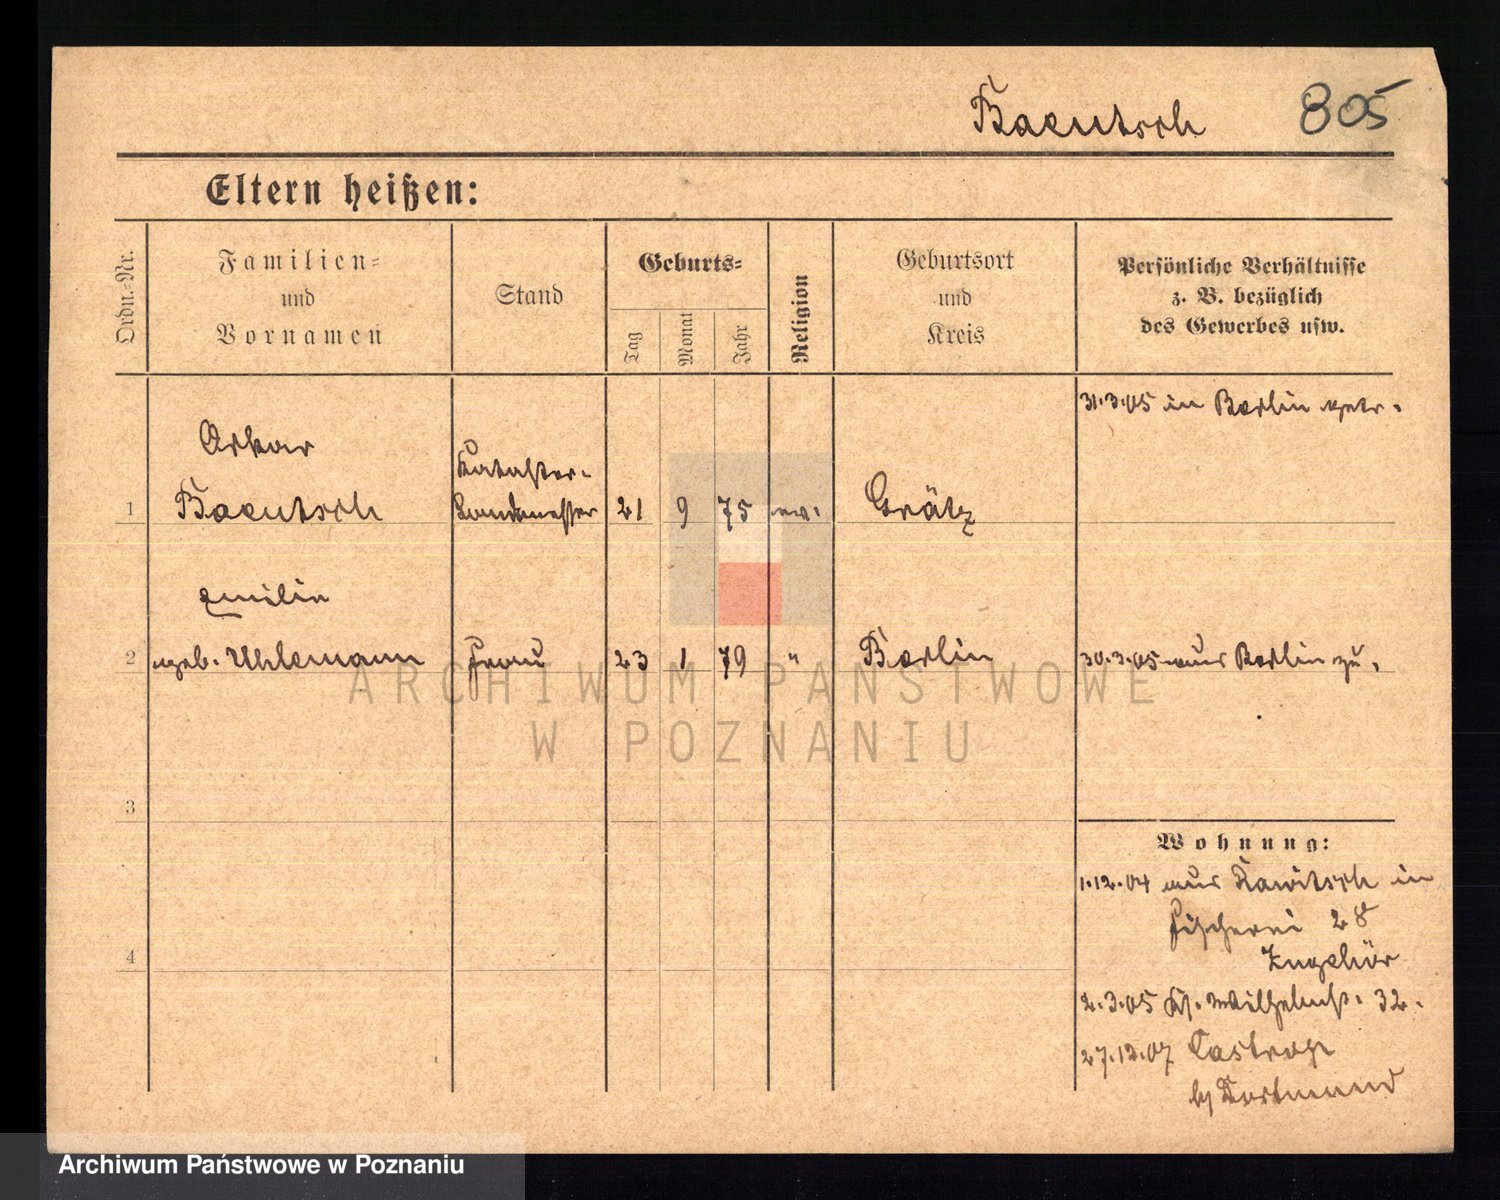 Baeutsch 805
Eltern heißen:
Ordn.-Nr.
Familien-
und
Vornamen
Stand
Geburts-
Tag
Monat
Jahr
Religion
Geburtsort
und
Kreis
Persönliche Verhältnisse
z. B. bezüglich
des Gewerbes usw.
31.3.05 in Berlin getr.
Oskar
Kataster-
1 Baeutsch Landmesser 21 9 75 ev. Grätz
Emilie
2 geb. Uhlemann Frau 23 1 79 " Berlin 30.3.05 aus Berlin zu.
3
Wohnung:
1.12.04 aus Rawitsch in
Fischerei 28
4
2.3.05 Ks. Wilhelmstr. 32.
27.12.07 Castrop
b/ Dortmund
ARCHIWUM PAŃSTWOWE
W POZNANIU
Archiwum Państwowe w Poznaniu